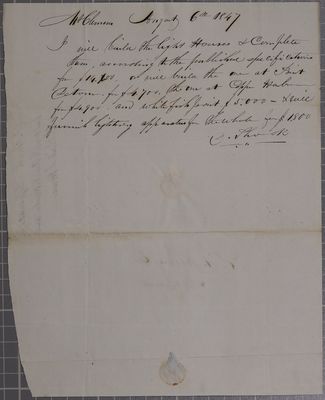 Mt Clemens August 6th 1847
I will build the Light Houses & Complete
them, according to the published specifications
for $14,200, or will build the one at Point
Betsey for $4,700, the one at Copper Harbor
for $4,500, and Whitefish point $5,000 – & will
furnish lighting apparatus for the whole for $1800